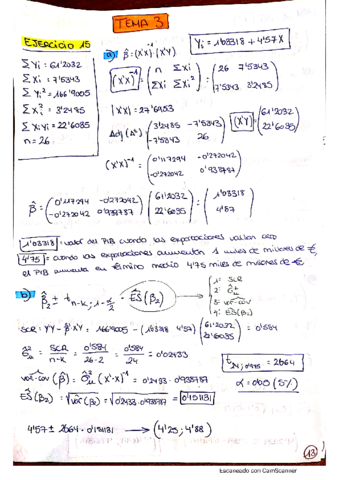 TEMA 3
EJERCICIO 15
Σ Yi = 61'2032
Σ Xi = 7'5343
Σ Yi² = 166'9005
Σ Xi² = 3'2485
Σ XiYi = 22'6035
n = 26
Yi = 1'03318 + 4'57X
a) β̂ = (X'X)⁻¹ (X'Y)
(X'X)⁻¹ = ( n ΣXi ; ΣXi ΣXi² ) = ( 26 7'5343 ; 7'5343 3'2485 )
|X'X| = 27'6953
Adj (A⁺) ( 3'2485 -7'5343 ; -7'5343 26 )
(X'Y) ( 61'2032 ; 22'6035 )
(X'X)⁻¹ = ( 0'117294 -0'272042 ; -0'272042 0'938787 )
β̂ = ( 0'117294 -0'272042 ; -0'272042 0'938787 ) ( 61'2032 ; 22'6035 ) = ( 1'03318 ; 4'57 )
1'03318 = valor del PIB cuando las exportaciones valían cero
4'75 = cuando las exportaciones aumentan 1 miles de millones de €,
el PIB aumenta en término medio 4'75 miles de millones de €
b) β̂₂ ± t n-k, 1-α/2 · ÊS(β₂)
1: SCR
2: σ̂²u
3: var-cov
4: ÊS(β₂)
SCR = Y'Y - β̂'X'Y = 166'9005 - (1'03318 4'57) ( 61'2032 ; 22'6035 ) = 0'584
σ̂²u = SCR / n-k = 0'584 / 26-2 = 0'584 / 24 = 0'02433
t 24, 0'975 = 2'064
var-cov (β̂) = σ̂²u (X'X)⁻¹ = 0'2433 · 0'938787
α = 0'05 (5%)
ÊS(β₂) = √var(β₂) = √0'02433 · 0'938787 = 0'151131
4'57 ± 2'064 · 0'151131 → (4'25 ; 4'88)
13
Escaneado con CamScanner